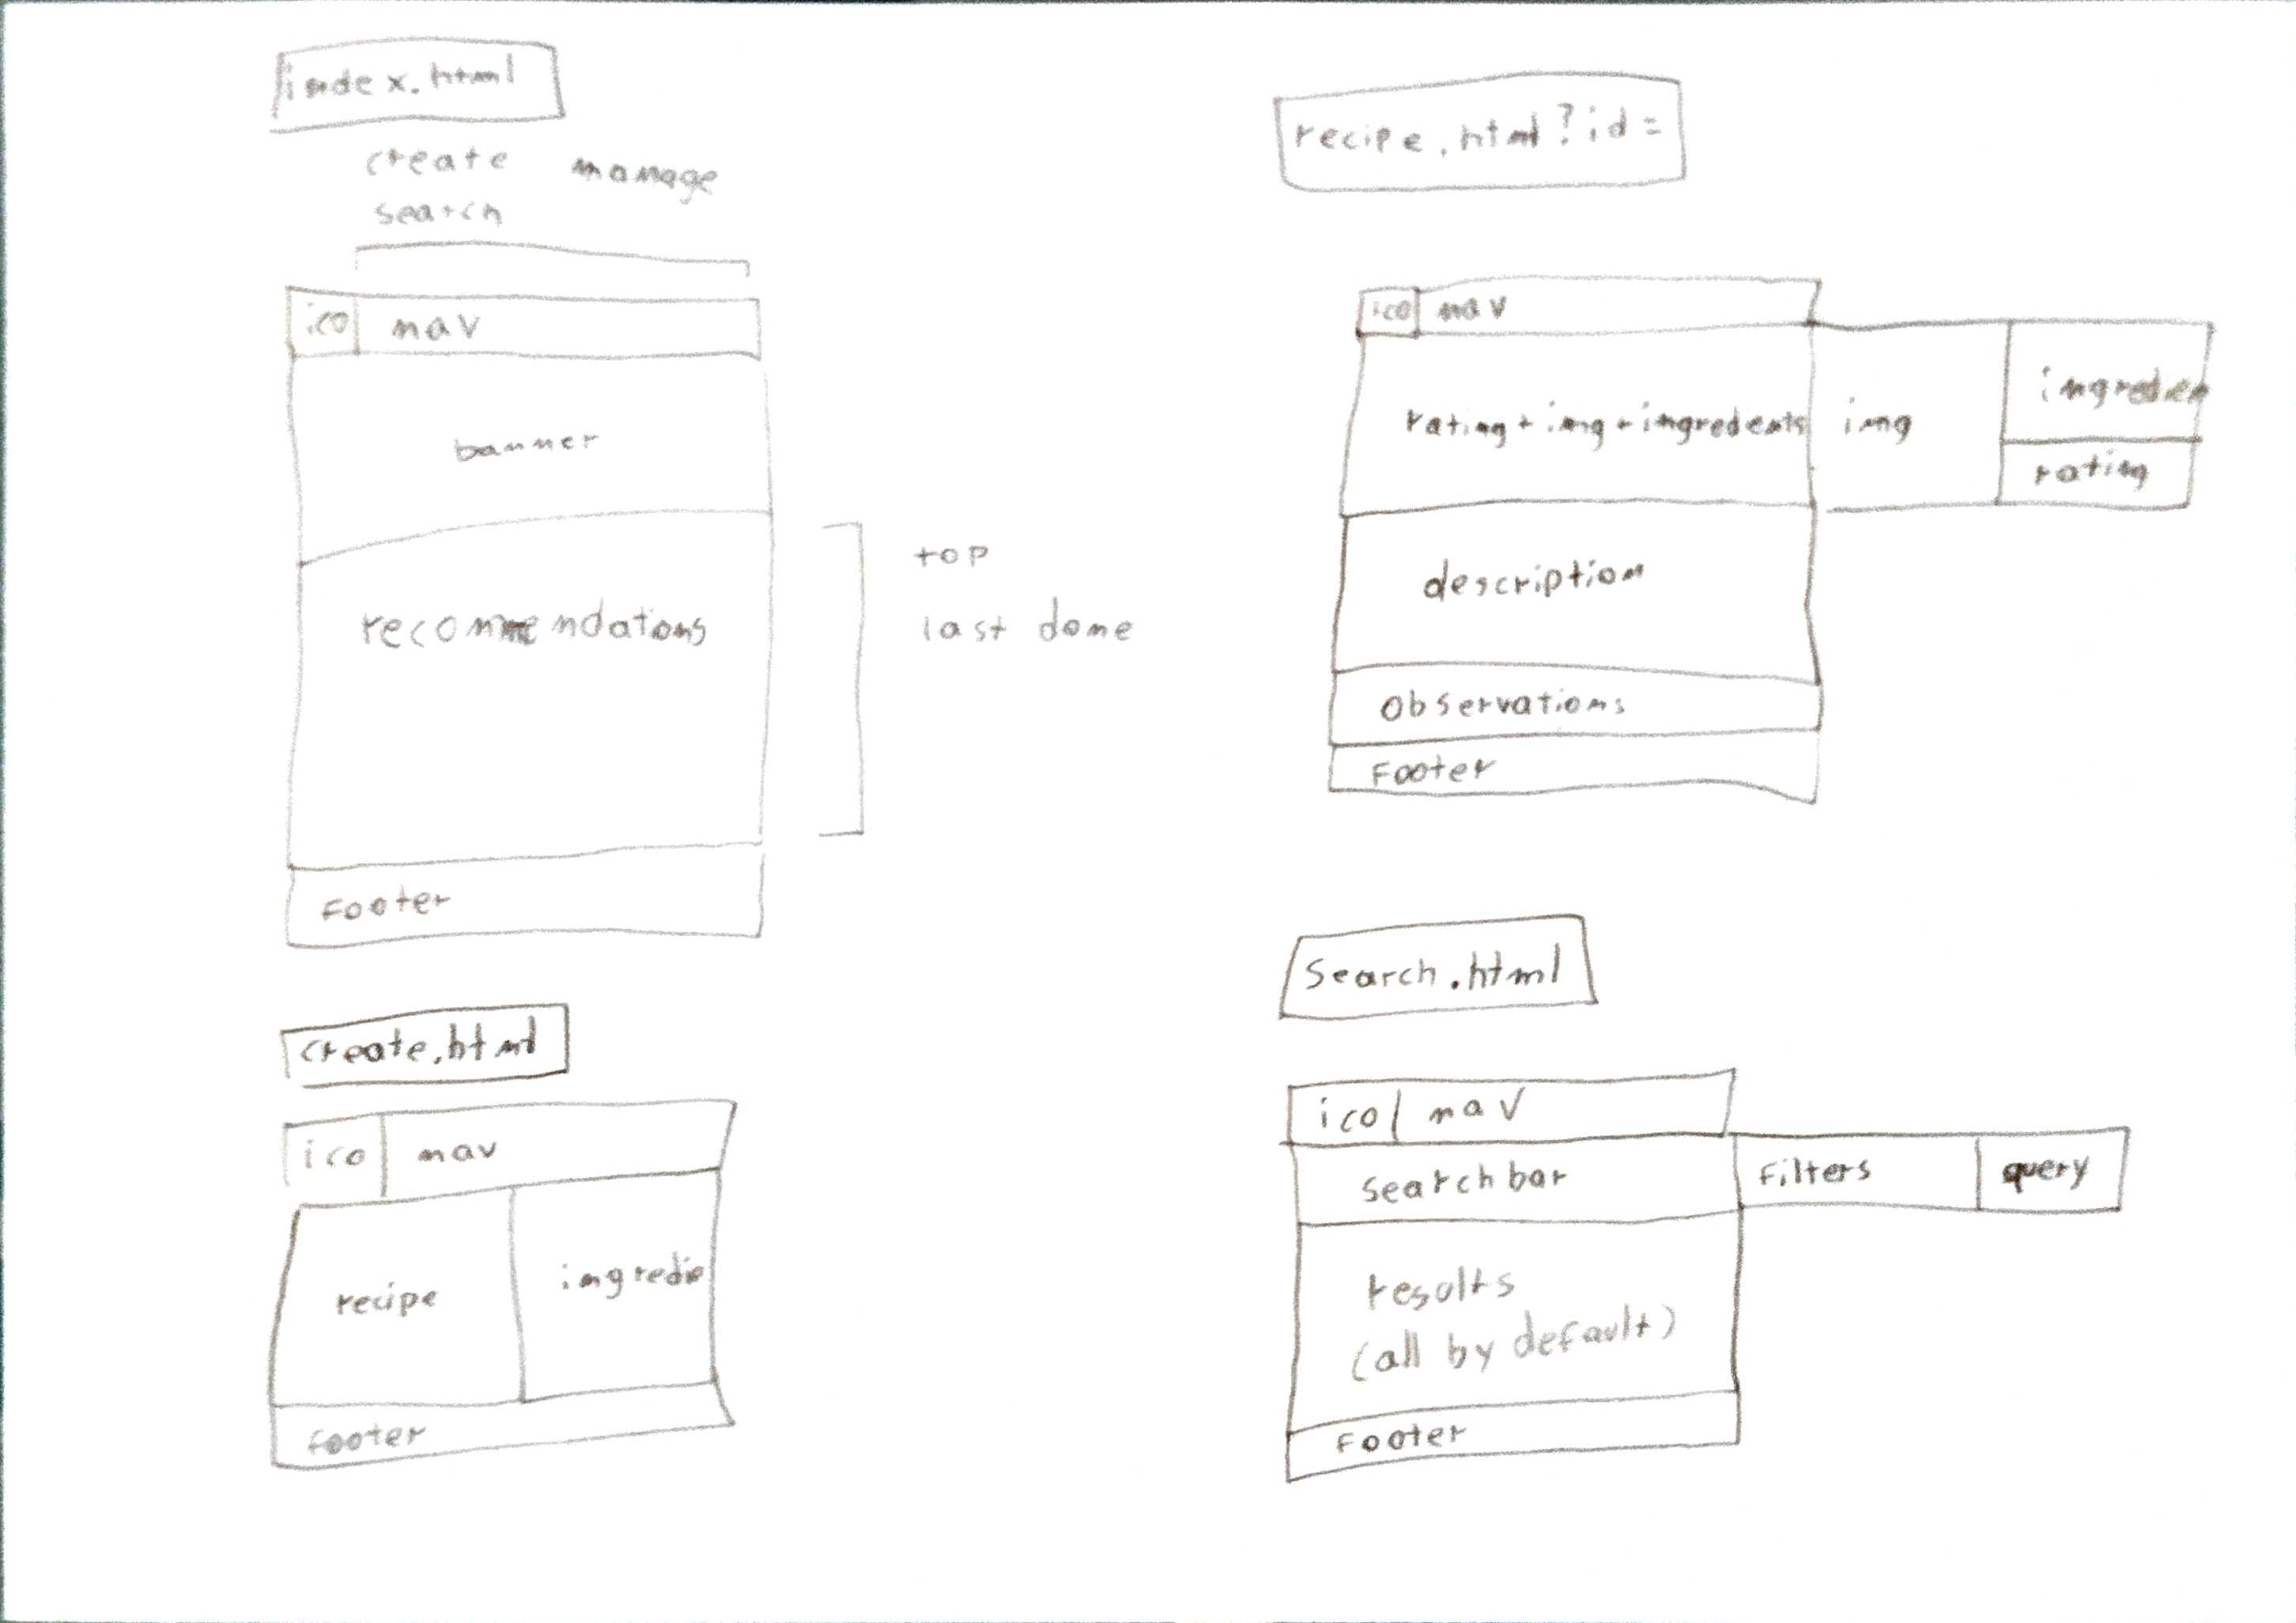 index.html
create manage
search
ico nav
banner
recommendations
top
last done
Footer
create.html
ico nav
recipe ingredie
footer
recipe.html?id=
ico nav
rating+img+ingredeents img ingredien
rating
description
Observations
Footer
Search.html
ico nav
Searchbar Filters query
results
(all by default)
Footer